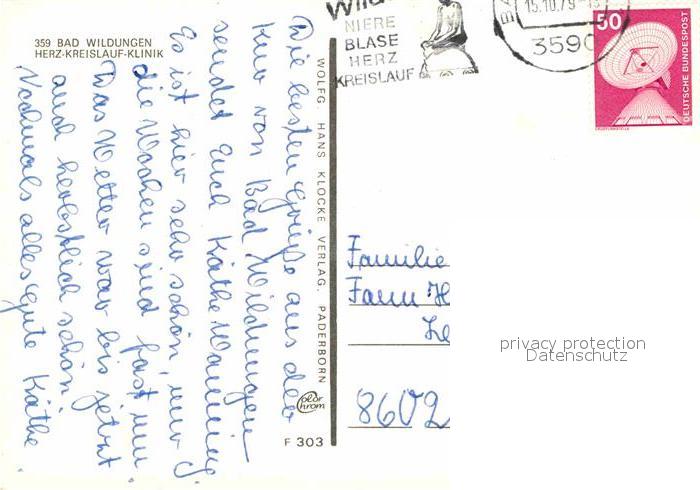 359 BAD WILDUNGEN
HERZ-KREISLAUF-KLINIK
Die besten Grüße aus der
Kur von Bad Wildungen
sendet Euch Käthe
Es ist hier sehr schön, nur
die Wochen sind fast um
Das Wetter war bis jetzt
auch herbstlich schön.
Nochmals alles Gute Käthe
WOLFG. HANS KLOCKE VERLAG, PADERBORN
color
chrom
F 303
NIERE
BLASE
HERZ
KREISLAUF
15.10.79-1
3590
50
DEUTSCHE BUNDESPOST
ERDEFUNKSTELLE
Familie
8602
privacy protection
Datenschutz